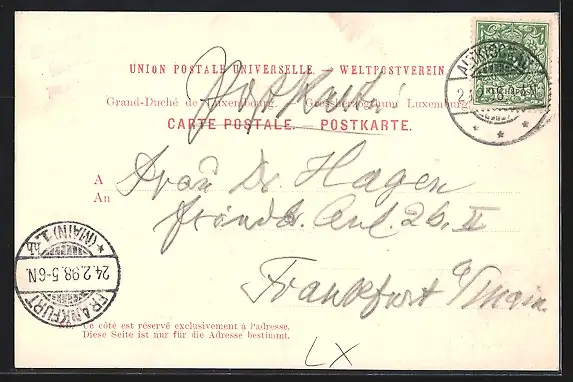 UNION POSTALE UNIVERSELLE. — WELTPOSTVEREIN
Grand-Duché de Luxembourg. Grossherzogthum Luxemburg.
CARTE POSTALE. — POSTKARTE.
A
An
Frau Dr. Hagen
Frankfurt a/Main.
FRANKFURT
24.2.98.5-6N.
* (MAIN) 1. hb
Ce côté est réservé exclusivement à l'adresse.
Diese Seite ist nur für die Adresse bestimmt.
LX